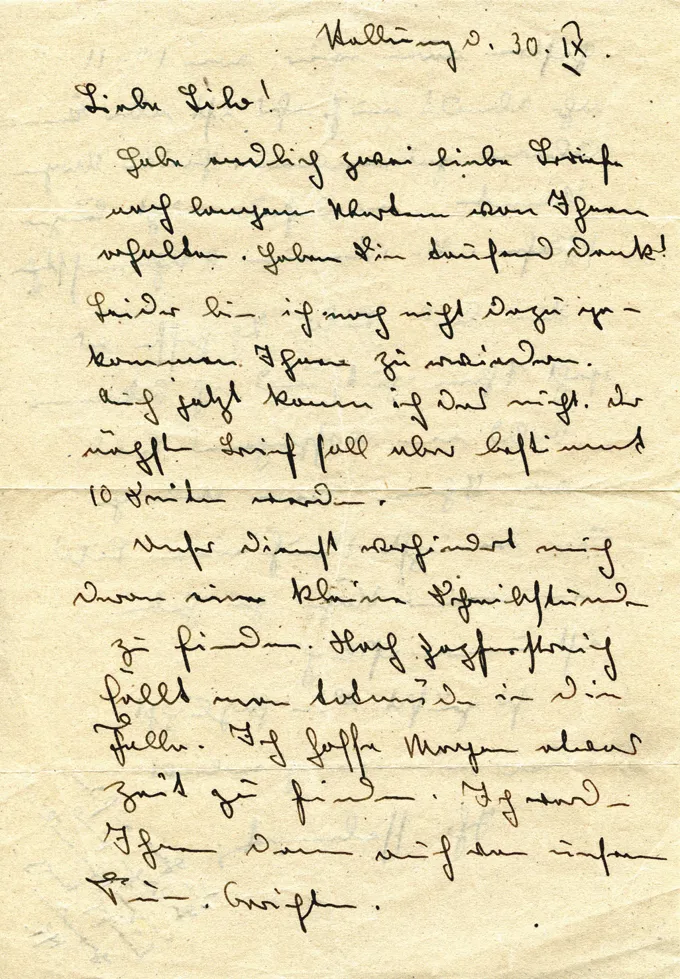 d. 30. IX.
Liebe Lilo!
Habe endlich zwei liebe Briefe
nach langem Warten von Ihnen
erhalten. Haben Sie tausend Dank!
Leider bin ich noch nicht dazu ge-
kommen Ihnen zu erwidern.
Auch jetzt kann ich das nicht. Der
nächste Brief soll aber bestimmt
10 Seiten werden.
Unser Dienst verhindert mich
daran eine kleine Schreibstunde
zu finden. Nach Zapfenstreich
fällt man totmüde in die
Falle. Ich hoffe Morgen etwas
Zeit zu finden. Ich werde
Ihnen dann auch von unserem
Tun berichten.